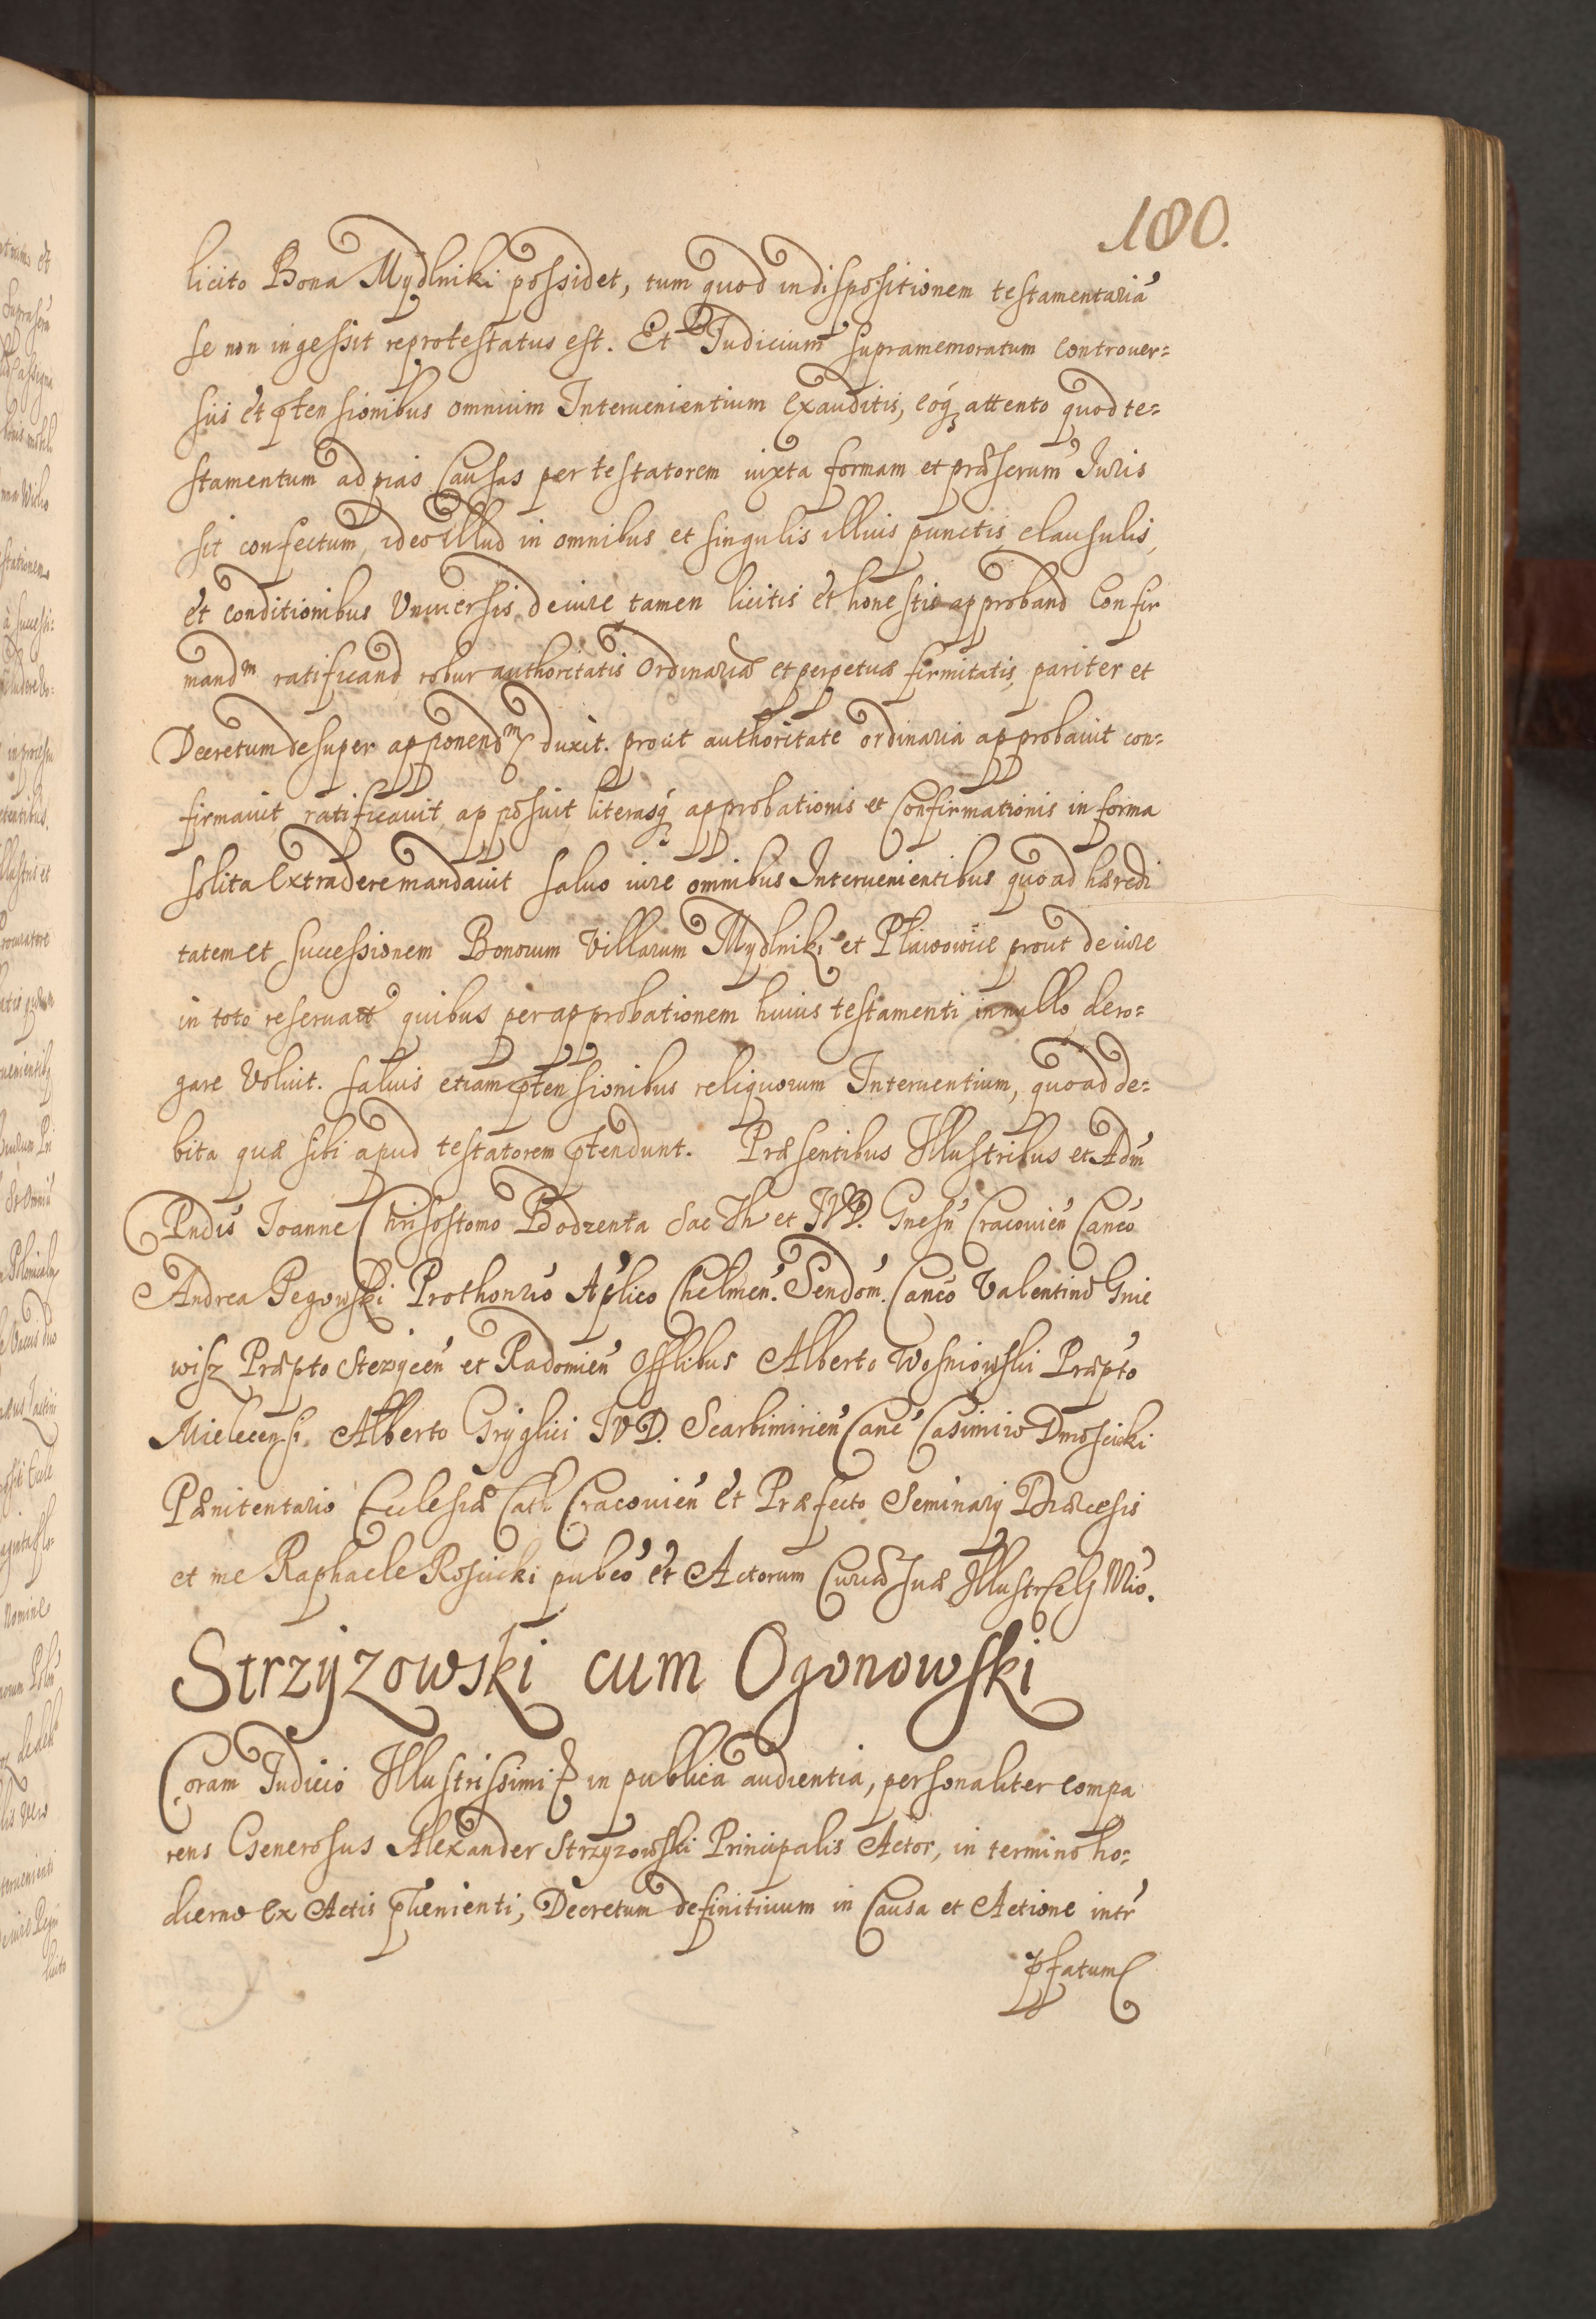 180.
licito Bona Mydlniki possidet, tum quod in dispositionem testamentariã
se non ingessit reprotestatus est. Et Iudicium supramemoratum controuer=
sijs et ptensionibus omnium Interuenientium exauditis, eoq attento quod te=
stamentum ad pias Causas per testatorem iuxta formam et præscrum Iuris
sit confectum, ideo illud in omnibus et singulis illius punctis clausulis,
et conditionibus Vniuersis de iure tamen licitis et honestis approband Confir
mandm ratificand robur authoritatis Ordinariæ et perpetuæ firmitatis, pariter et
Decretum desuper apponendm duxit. prout authoritate ordinaria approbauit con=
firmauit ratificauit, apposuit literasq approbationis et Confirmationis in forma
solita extradere mandauit saluo iure omnibus Interuenientibus quoad hæredi
tatem et successionem Bonorum Villarum Mydlniki et Plawowice prout de iure
in toto reseruatt quibus per approbationem huius testamenti in nullo dero=
gare Voluit. saluis etiam ptensionibus reliquorum Interuentium, quoad de=
bita quæ sibi apud testatorem ptendunt. Præsentibus Illustribus et Adm
Rndis Ioanne Chrisostomo Bodzenta Sac Th et IVD. Gnesn Cracouien Canco
Andrea Pegowski Prothonrio Aplico Chelmen. Sendom. Canco Valentino Gnie
wisz Præpto Stezycen et Radomien Offlibus Alberto Wosniowski Præpto
Mielecensi, Alberto Gryglici IVD. Scarbimirien Canc Casimiro Dmosicki
Pænitentario Ecclesiæ Cath Cracouien Et Præfecto Seminarij Diæcesis
et me Raphaele Rosicki pubco et Actorum Curiæ suæ Illustr Nrio.
Strzyzowski cum Ogonowski
Coram Iudicio Illustrissimi in publica audientia, personaliter compa
rens Generosus Alexander Strzyzowski Principalis Actor, in termino ho=
dierno ex Actis puenienti, Decretum definitiuum in Causa et Actione intr
pfatum